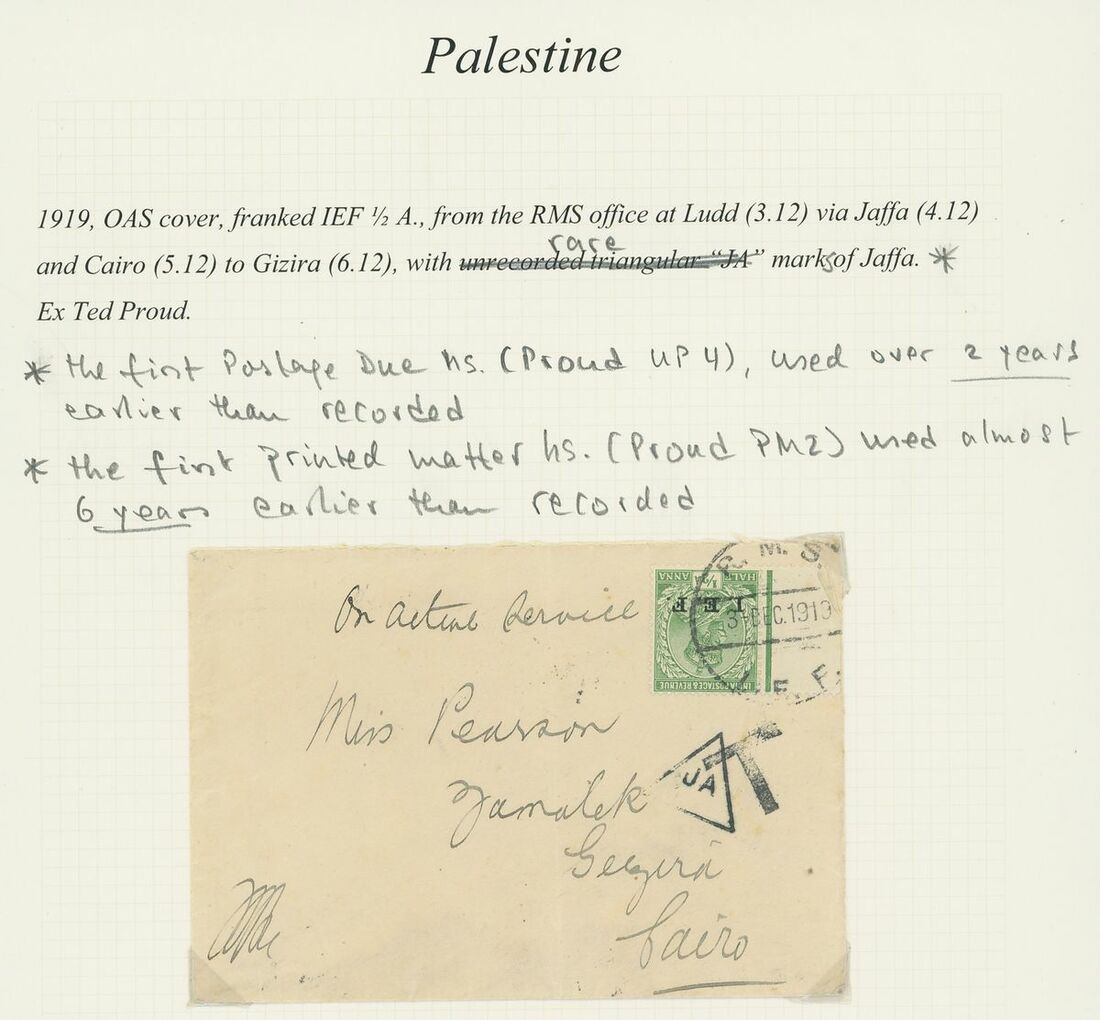 Palestine
1919, OAS cover, franked IEF ½ A., from the RMS office at Ludd (3.12) via Jaffa (4.12)
rare
and Cairo (5.12) to Gizira (6.12), with unrecorded triangular "JA" marks of Jaffa. *
Ex Ted Proud.
* the first Postage Due hs. (Proud UP 4), used over 2 years
earlier than recorded
* the first printed matter hs. (Proud PM2) used almost
6 years earlier than recorded
On Active Service
HALF ½ A ANNA
I E F
INDIA POSTAGE & REVENUE
R. M. S.
3 DEC. 1919
E. F.
Miss Pearson
JA
T
Zamalek
Gezira
Cairo